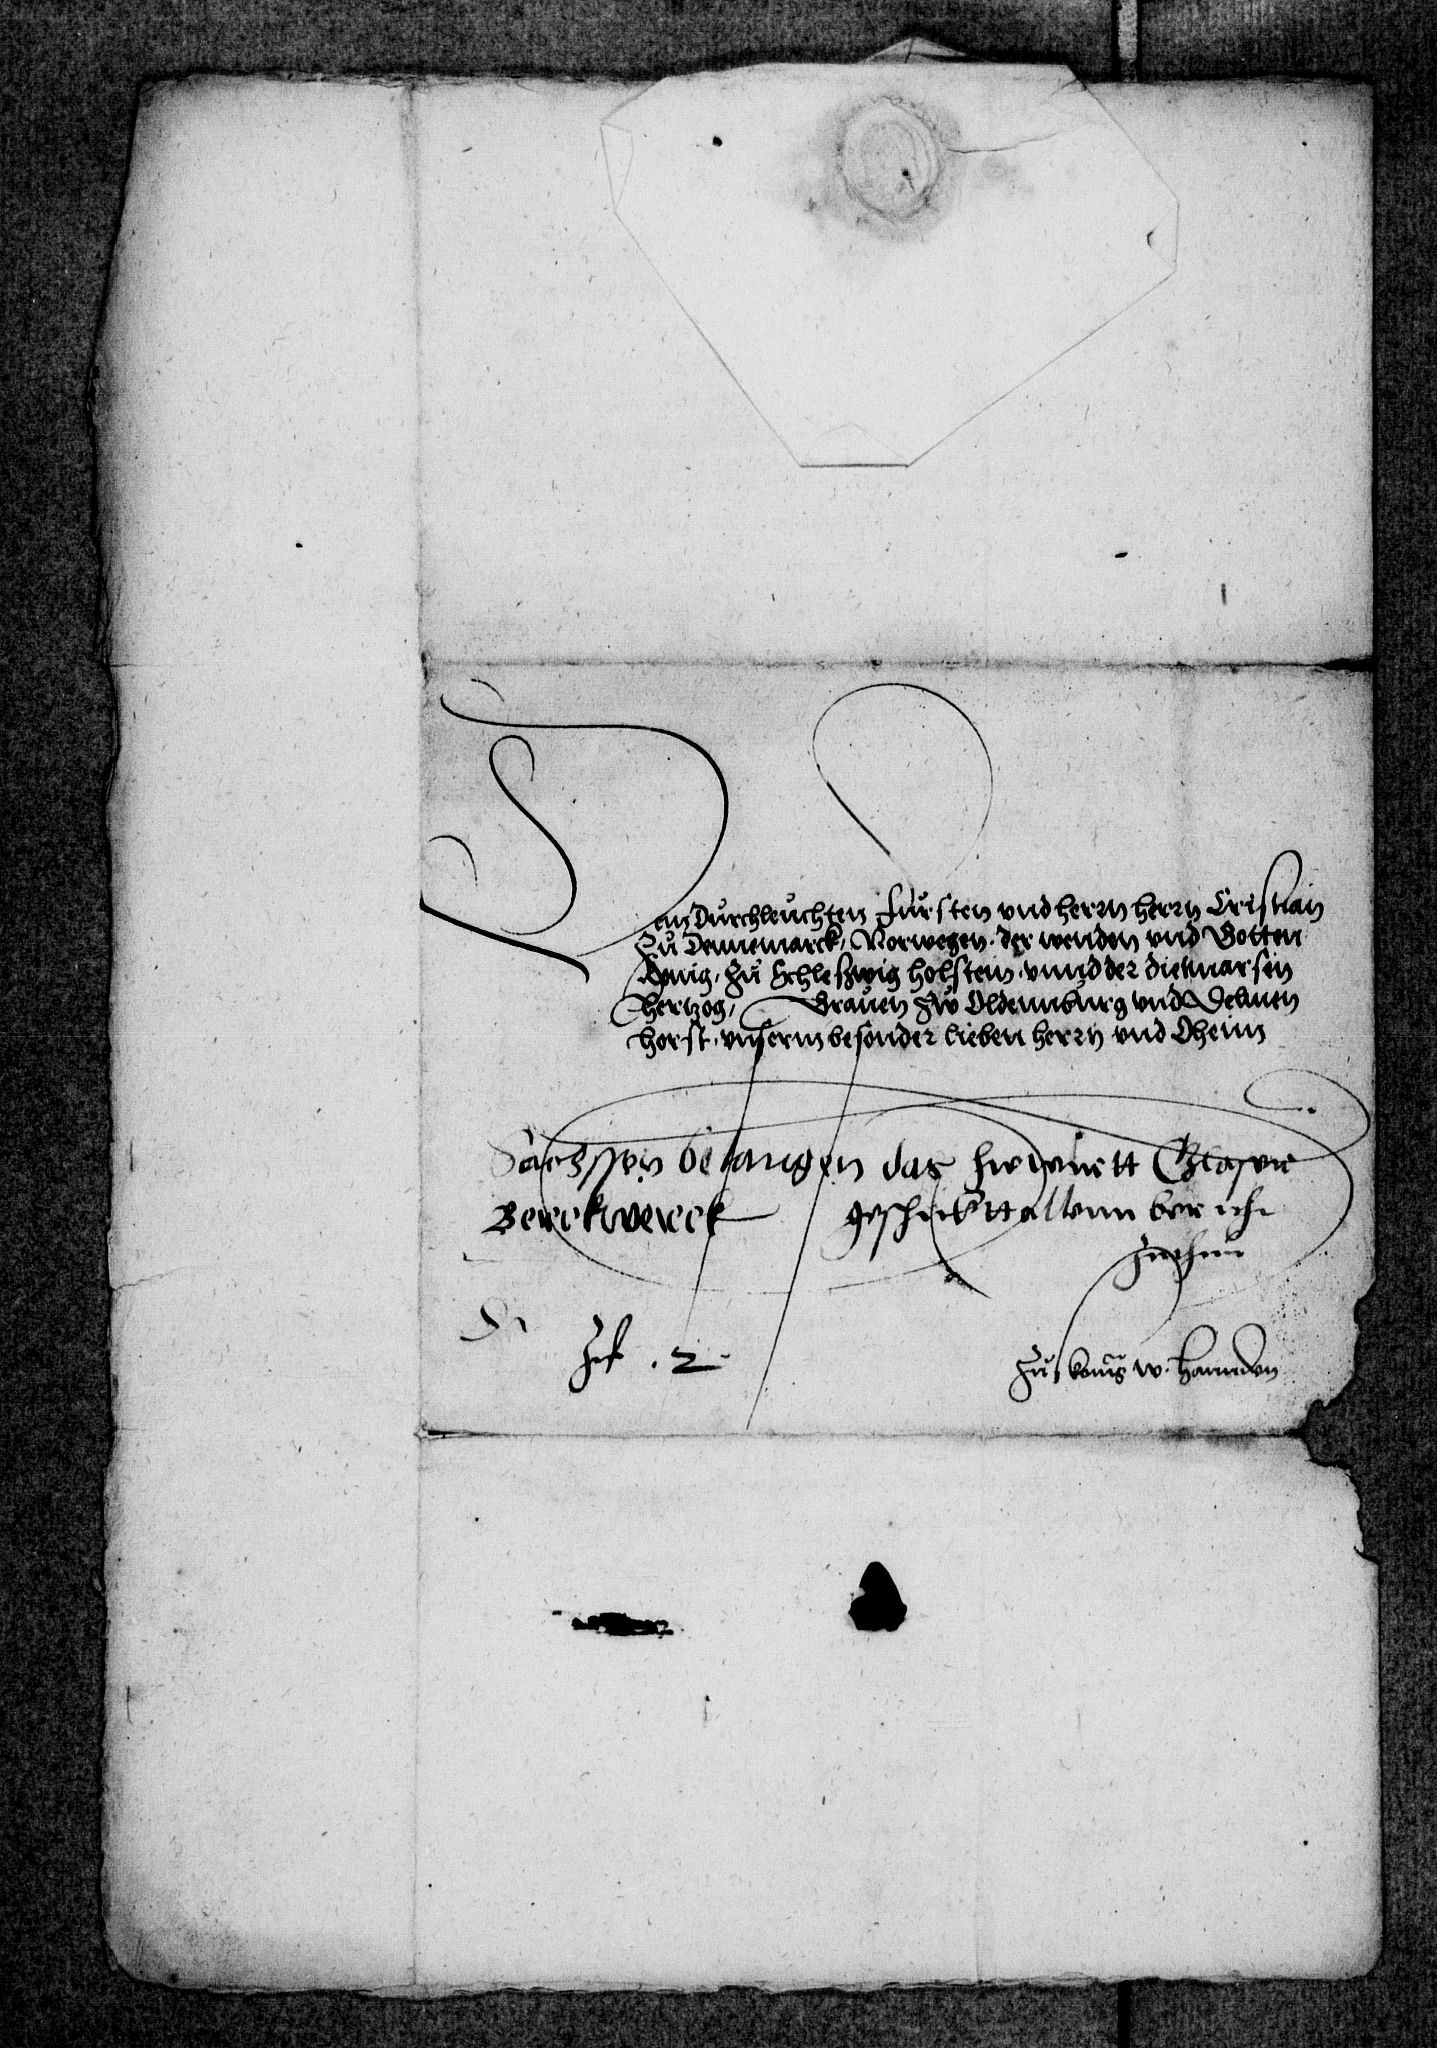 Dem Durchleuchten Fürsten vnd herrn herrn Cristian
Zu Dennemarck, Norwegen, der wenden vnd Gotten
Konig, Zu Schleßwig holstein, vnnd der dietmarsen
hertzog, Grauen zw Oldennburg vnd Delmen
horst, vnserm besonder lieben herrn vnd Oheim
Sachssen belangen das
Berckwerck geschickt
2
Zu konig w. handen